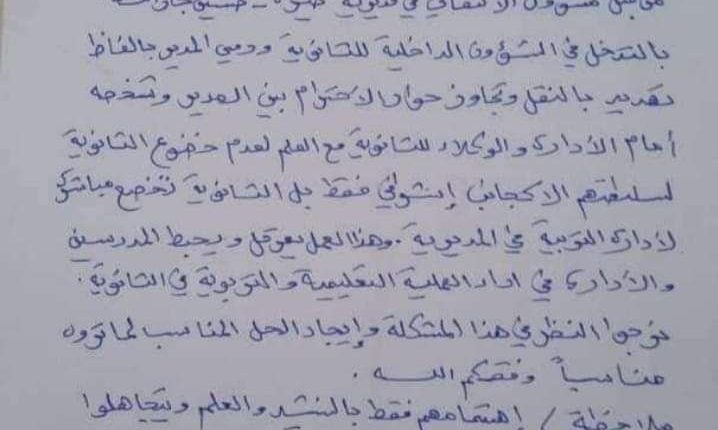 من قبل مسؤول الانتقالي في مديرية
بالتدخل في الشؤون الداخلية للثانوية ورمي المدير بالفاظ
تهديد بالنقل وتجاوز حدود الاحترام بين المدير وشخصه
أمام الأدارة والوكلاء للثانوية مع العلم لعدم خضوع الثانوية
لسلطتهم فقط بل الثانوية تخضع مباشرة
لأدارة التربية في المديرية. وهذا العمل يعرقل ويحبط المدرسين
والأدارة في اداء العملية التعليمية والتربوية في الثانوية.
نرجوا النظر في هذا المشكلة وإيجاد الحل المناسب لما تروه
مناسباً وفقكم الله.
ملاحظة / إهتمامهم فقط بالنشيد والعلم ويتجاهلوا